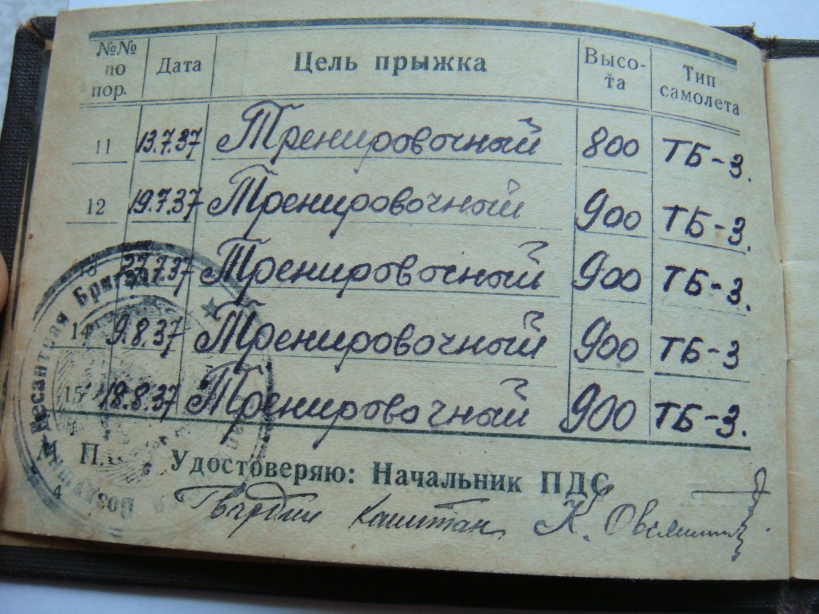 №№ по пор. Дата Цель прыжка Высо-та Тип самолета
11 13.7.37 Тренировочный 800 ТБ-3.
12 19.7.37 Тренировочный 900 ТБ-3.
13 27.7.37 Тренировочный 900 ТБ-3.
14 9.8.37 Тренировочный 900 ТБ-3
15 18.8.37 Тренировочный 900 ТБ-3.
М. П.
Удостоверяю: Начальник ПДС
Гвардии капитан К.
4